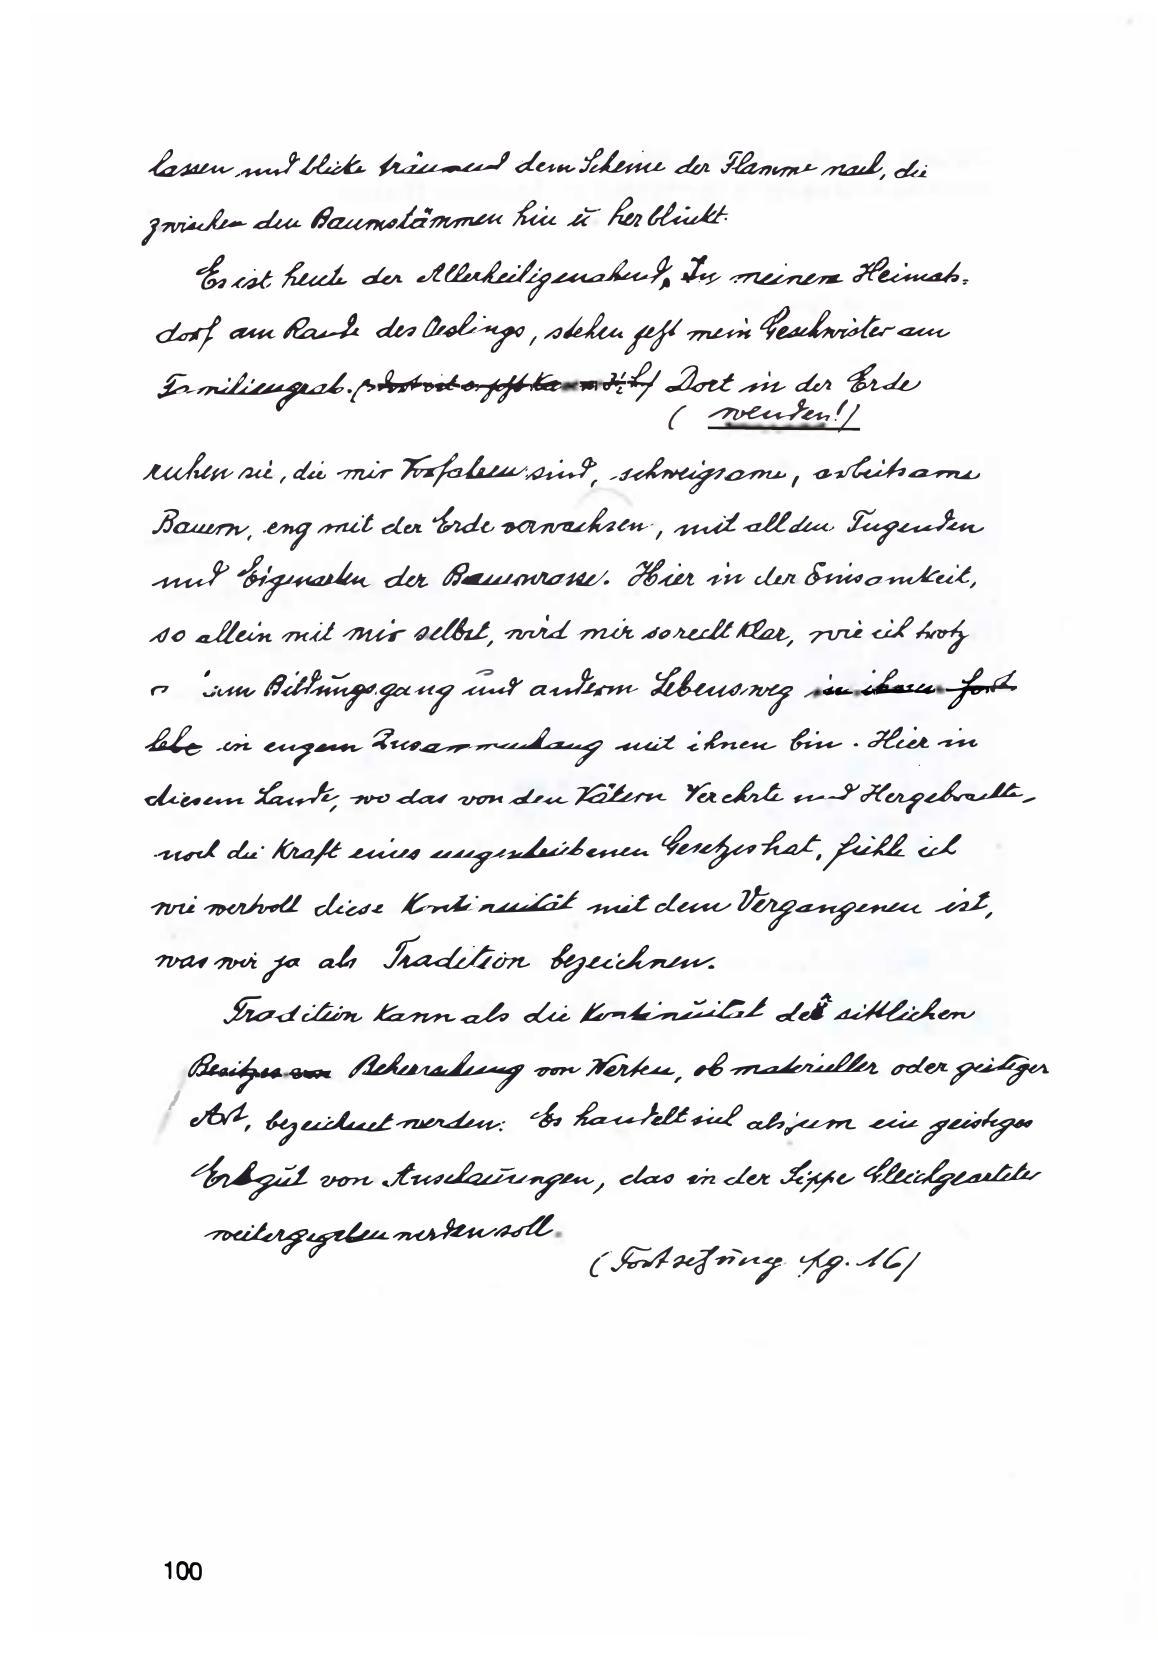 lassen und blicke träumend dem Scheine der Flamme nach, die
zwischen den Baumstämmen hin ŭ her blinkt.
Es ist heute der Allerheiligenabend. In meinem Heimats-
dorf am Rande des Oeslings, stehen jetzt mein Geschwister am
Familiengrab. Dort in der Erde
( wenden!)
ruhen sie, die mir Vorfahren sind, schweigsame, arbeitsame
Bauern, eng mit der Erde verwachsen, mit all den Tugenden
und Eigenarten der Bauernrasse. Hier in der Einsamkeit,
so allein mit mir selbst, wird mir so recht klar, wie ich trotz
Bildŭngsgang und anderm Lebensweg in ihnen fort
lebe in engem Zusammenhang mit ihnen bin. Hier in
diesem Lande, wo das von den Vätern Verehrte und Hergebrachte,
noch die Kraft eines ungeschriebenen Gesetzes hat, fühle ich
wie wertvoll diese Kontinuität mit dem Vergangenen ist,
was wir ja als Tradition bezeichnen.
Tradition kann als die Kontinŭität der sittlichen
Besitzes von Beherrschung von Werten, ob materieller oder geistiger
Art, bezeichnet werden. Es handelt sich also um ein geistiges
Erbgŭt von Anschauŭngen, das in der Sippe Gleichgearteter
weitergegeben werden soll.
(Fortsetzŭng pg. 16)
100